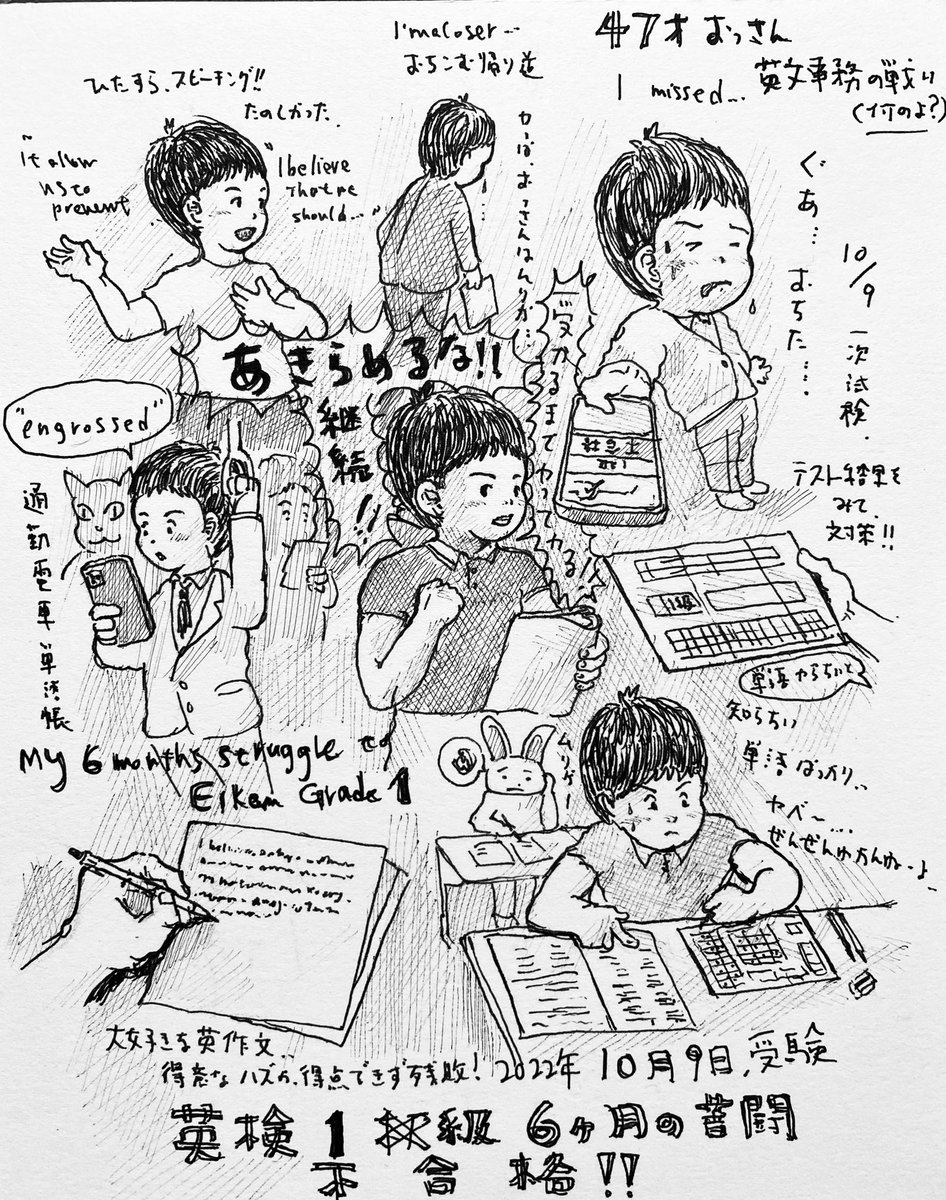 47才おっさん
英文事務の戦い
(何のよ?)
I missed...
I'm a Loser...
おちこむ帰り道
ひたすら、スピーキング!!
たのしかった
"It allow
us to
prevent
"I believe
That we
should..."
ぐあ… おちた…
10/9 一次試検.
受かるまでやってやる
あきらめるな!!
継続!!
"engrossed"
通勤電車単語帳
テスト結果を
みて、
対策!!
単語からちいと
知らない
単語ばっかり..
ヤベ〜…
ぜんぜんわかんねーよ
ムリゲー
My 6 months struggle to
Eiken Grade 1
大好きな英作文..
得意なハズが、得点できず惨敗!
2022年 10月9日、受験
英検1級 6ヶ月の苦闘
不合格!!